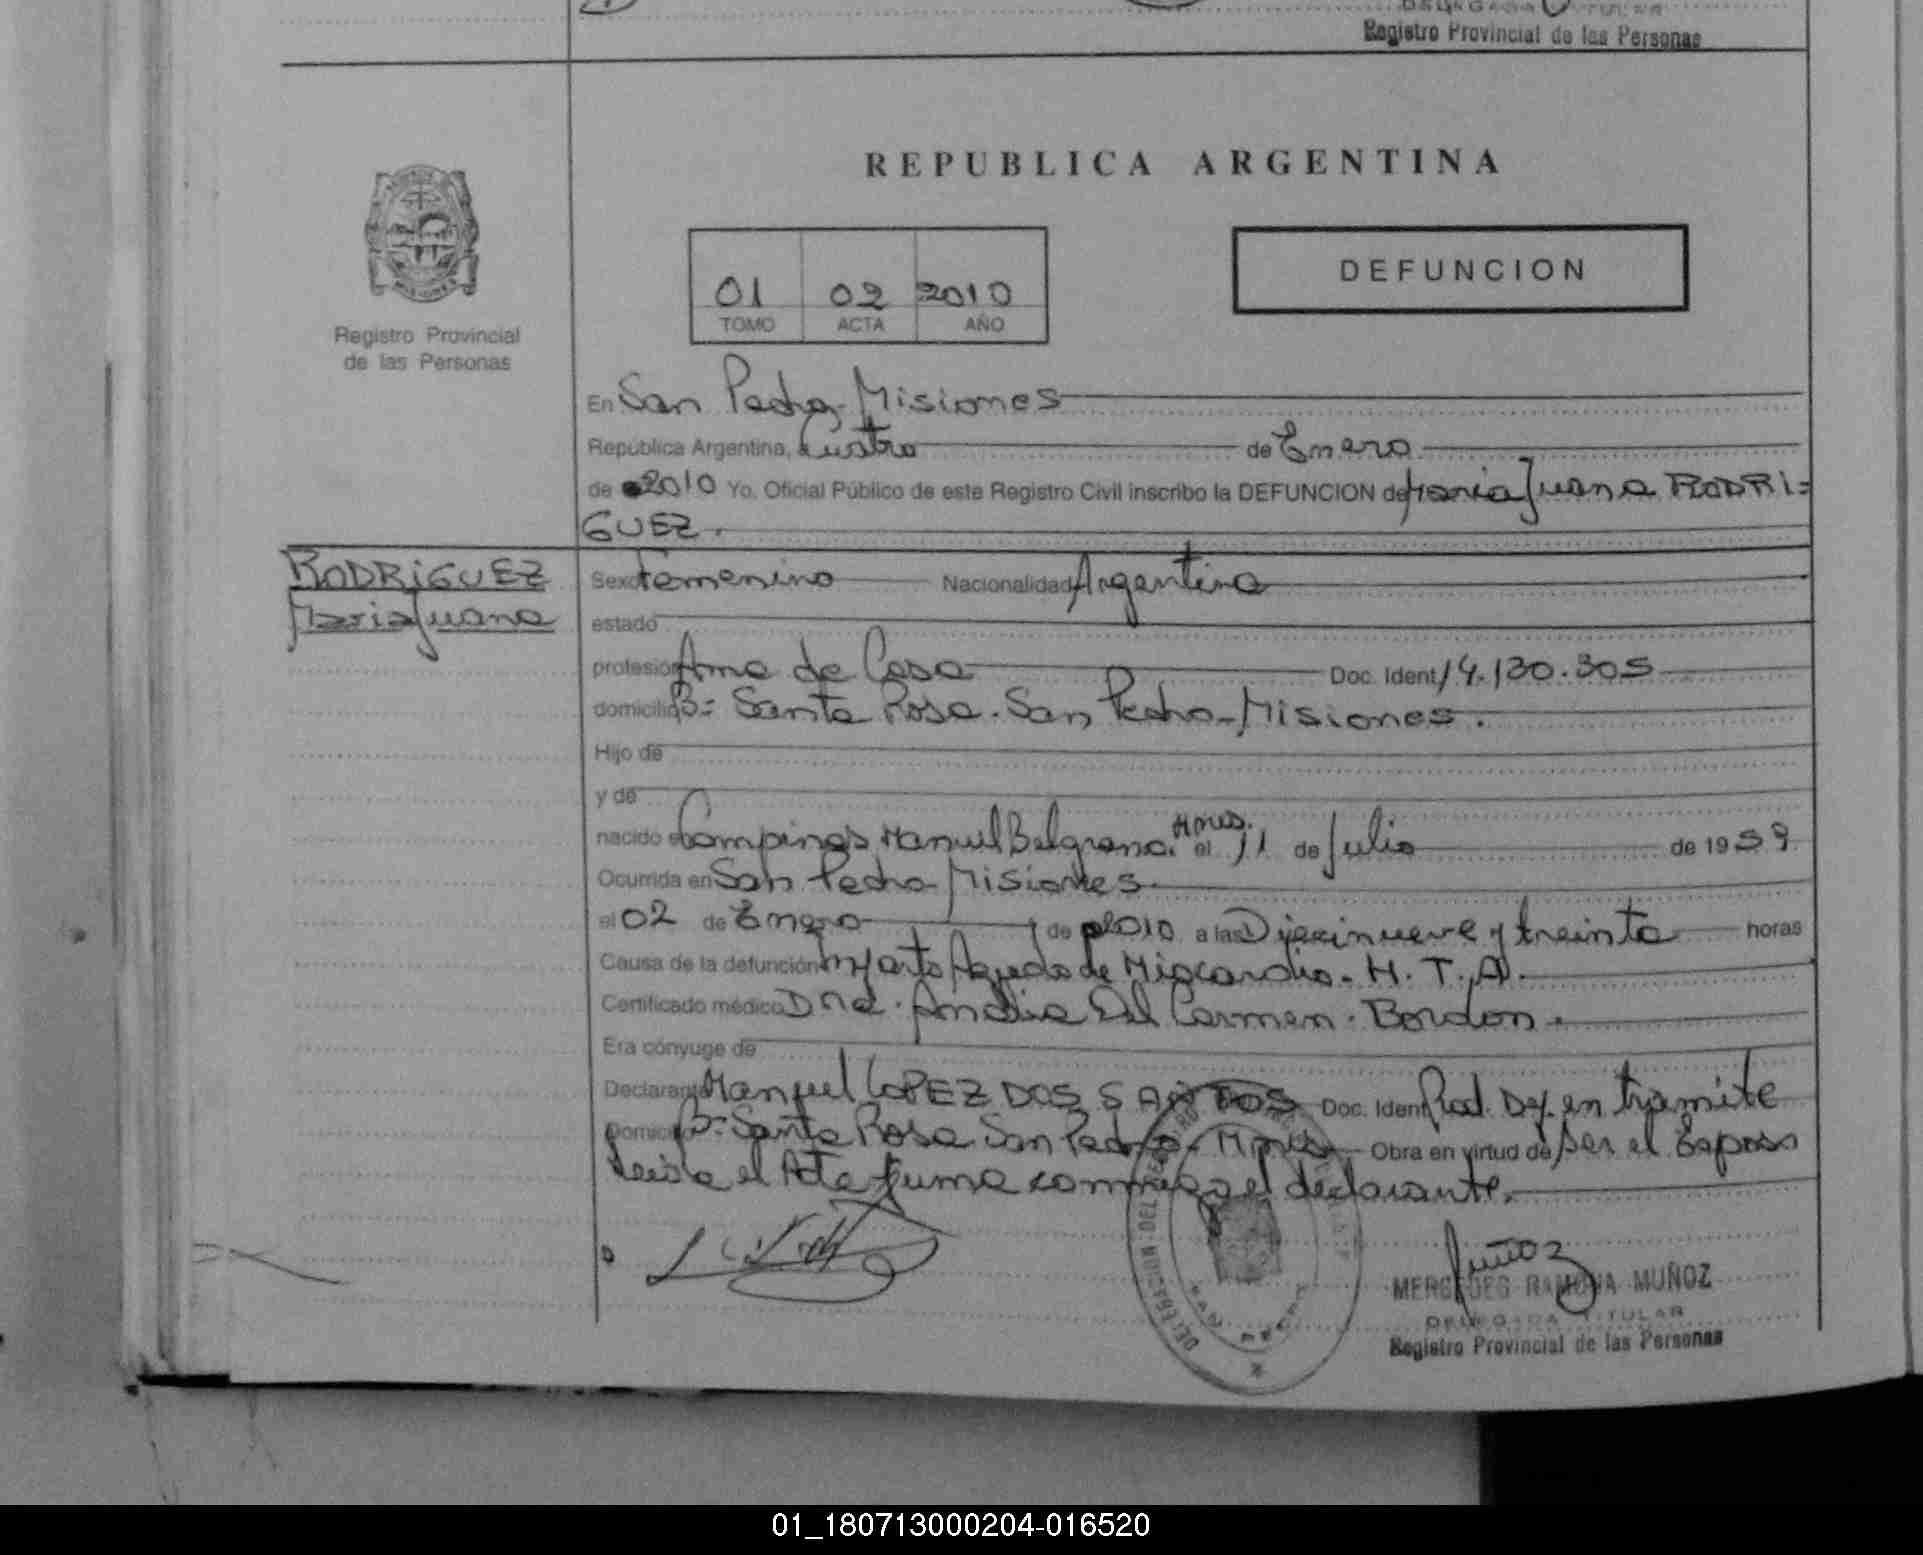 Registro Provincial de las Personas
REPUBLICA ARGENTINA
DEFUNCION
01 02 2010
TOMO ACTA AÑO
Registro Provincial
de las Personas
En San Pedro - Misiones
República Argentina, Cuatro de Enero
de 2010 Yo, Oficial Público de este Registro Civil inscribo la DEFUNCION de Maria Juana RODRI=
GUEZ.
RODRIGUEZ
Maria Juana
Sexo Femenino Nacionalidad Argentina
estado
profesión Ama de Casa Doc. Ident 14.130.305
domicilio B= Santa Rosa. San Pedro - Misiones.
Hijo de
y de
nacido en Campinas Manuel Belgrano. Mnes. el 11 de Julio de 1959
Ocurrida en San Pedro - Misiones.
el 02 de Enero de 2010 a las Diecinueve y treinta horas
Causa de la defunción Infarto Agudo de Miocardio - H.T.A.
Certificado médico Dra. Amalia Del Carmen. Bordon.
Era cónyuge de
Declarante Manuel LOPEZ DOS SANTOS Doc. Ident Rad. Def. en tramite
Domicilio B= Santa Rosa San Pedro - Mnes Obra en virtud de ser el Esposo
Leida el Acta firma conmigo el declarante.
Muñoz
MERCEDES RAMONA MUÑOZ
DELEGADA TITULAR
Registro Provincial de las Personas
SAN PEDRO
01_180713000204-016520